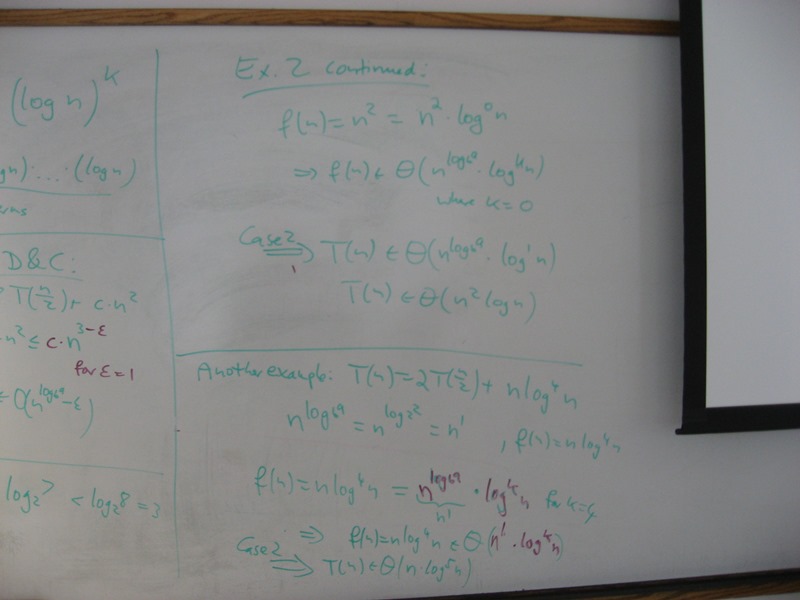 (log n)^k
(log n)
D&C:
T(n/2) + c·n²
n² ≤ c·n^(3-ε)
for ε=1
O(n^(log_b a - ε))
log₂7 < log₂8 = 3
Ex. 2 continued:
f(n) = n² = n²·log⁰n
⇒ f(n) ∈ Θ(n^(log_b a)·log^k n)
where k=0
Case 2 ⇒ T(n) ∈ Θ(n^(log_b a)·log¹n)
T(n) ∈ Θ(n² log n)
Another example: T(n) = 2T(n/2) + n log⁴n
n^(log_b a) = n^(log₂2) = n¹, f(n) = n log⁴n
f(n) = n log⁴n = n^(log_b a)·log^k n for k=4
n¹
⇒ f(n) = n log⁴n ∈ Θ(n¹·log^k n)
Case 2 ⇒ T(n) ∈ Θ(n·log⁵n)